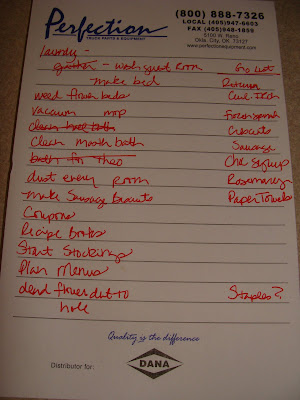 Perfection
TRUCK PARTS & EQUIPMENT
(800) 888-7326
LOCAL (405)947-6603
FAX (405)948-1859
5100 W. Reno
Okla. City, OK 73127
www.perfectionequipment.com
laundry -
wash guest room
make bed
weed flower beds
vacuum mop
clean hall bath
Clean master bath
bath for Theo
dust every room
make Sausage Biscuits
Coupons
Recipe Books
Start Stockings
Plan Menus
dead flower dirt to
hole
Go List
Return
Frozen spinach
Biscuits
Sausage
Choc Syrup
Rosemary
Paper Towels
Staples?
Quality is the difference
Distributor for:
DANA